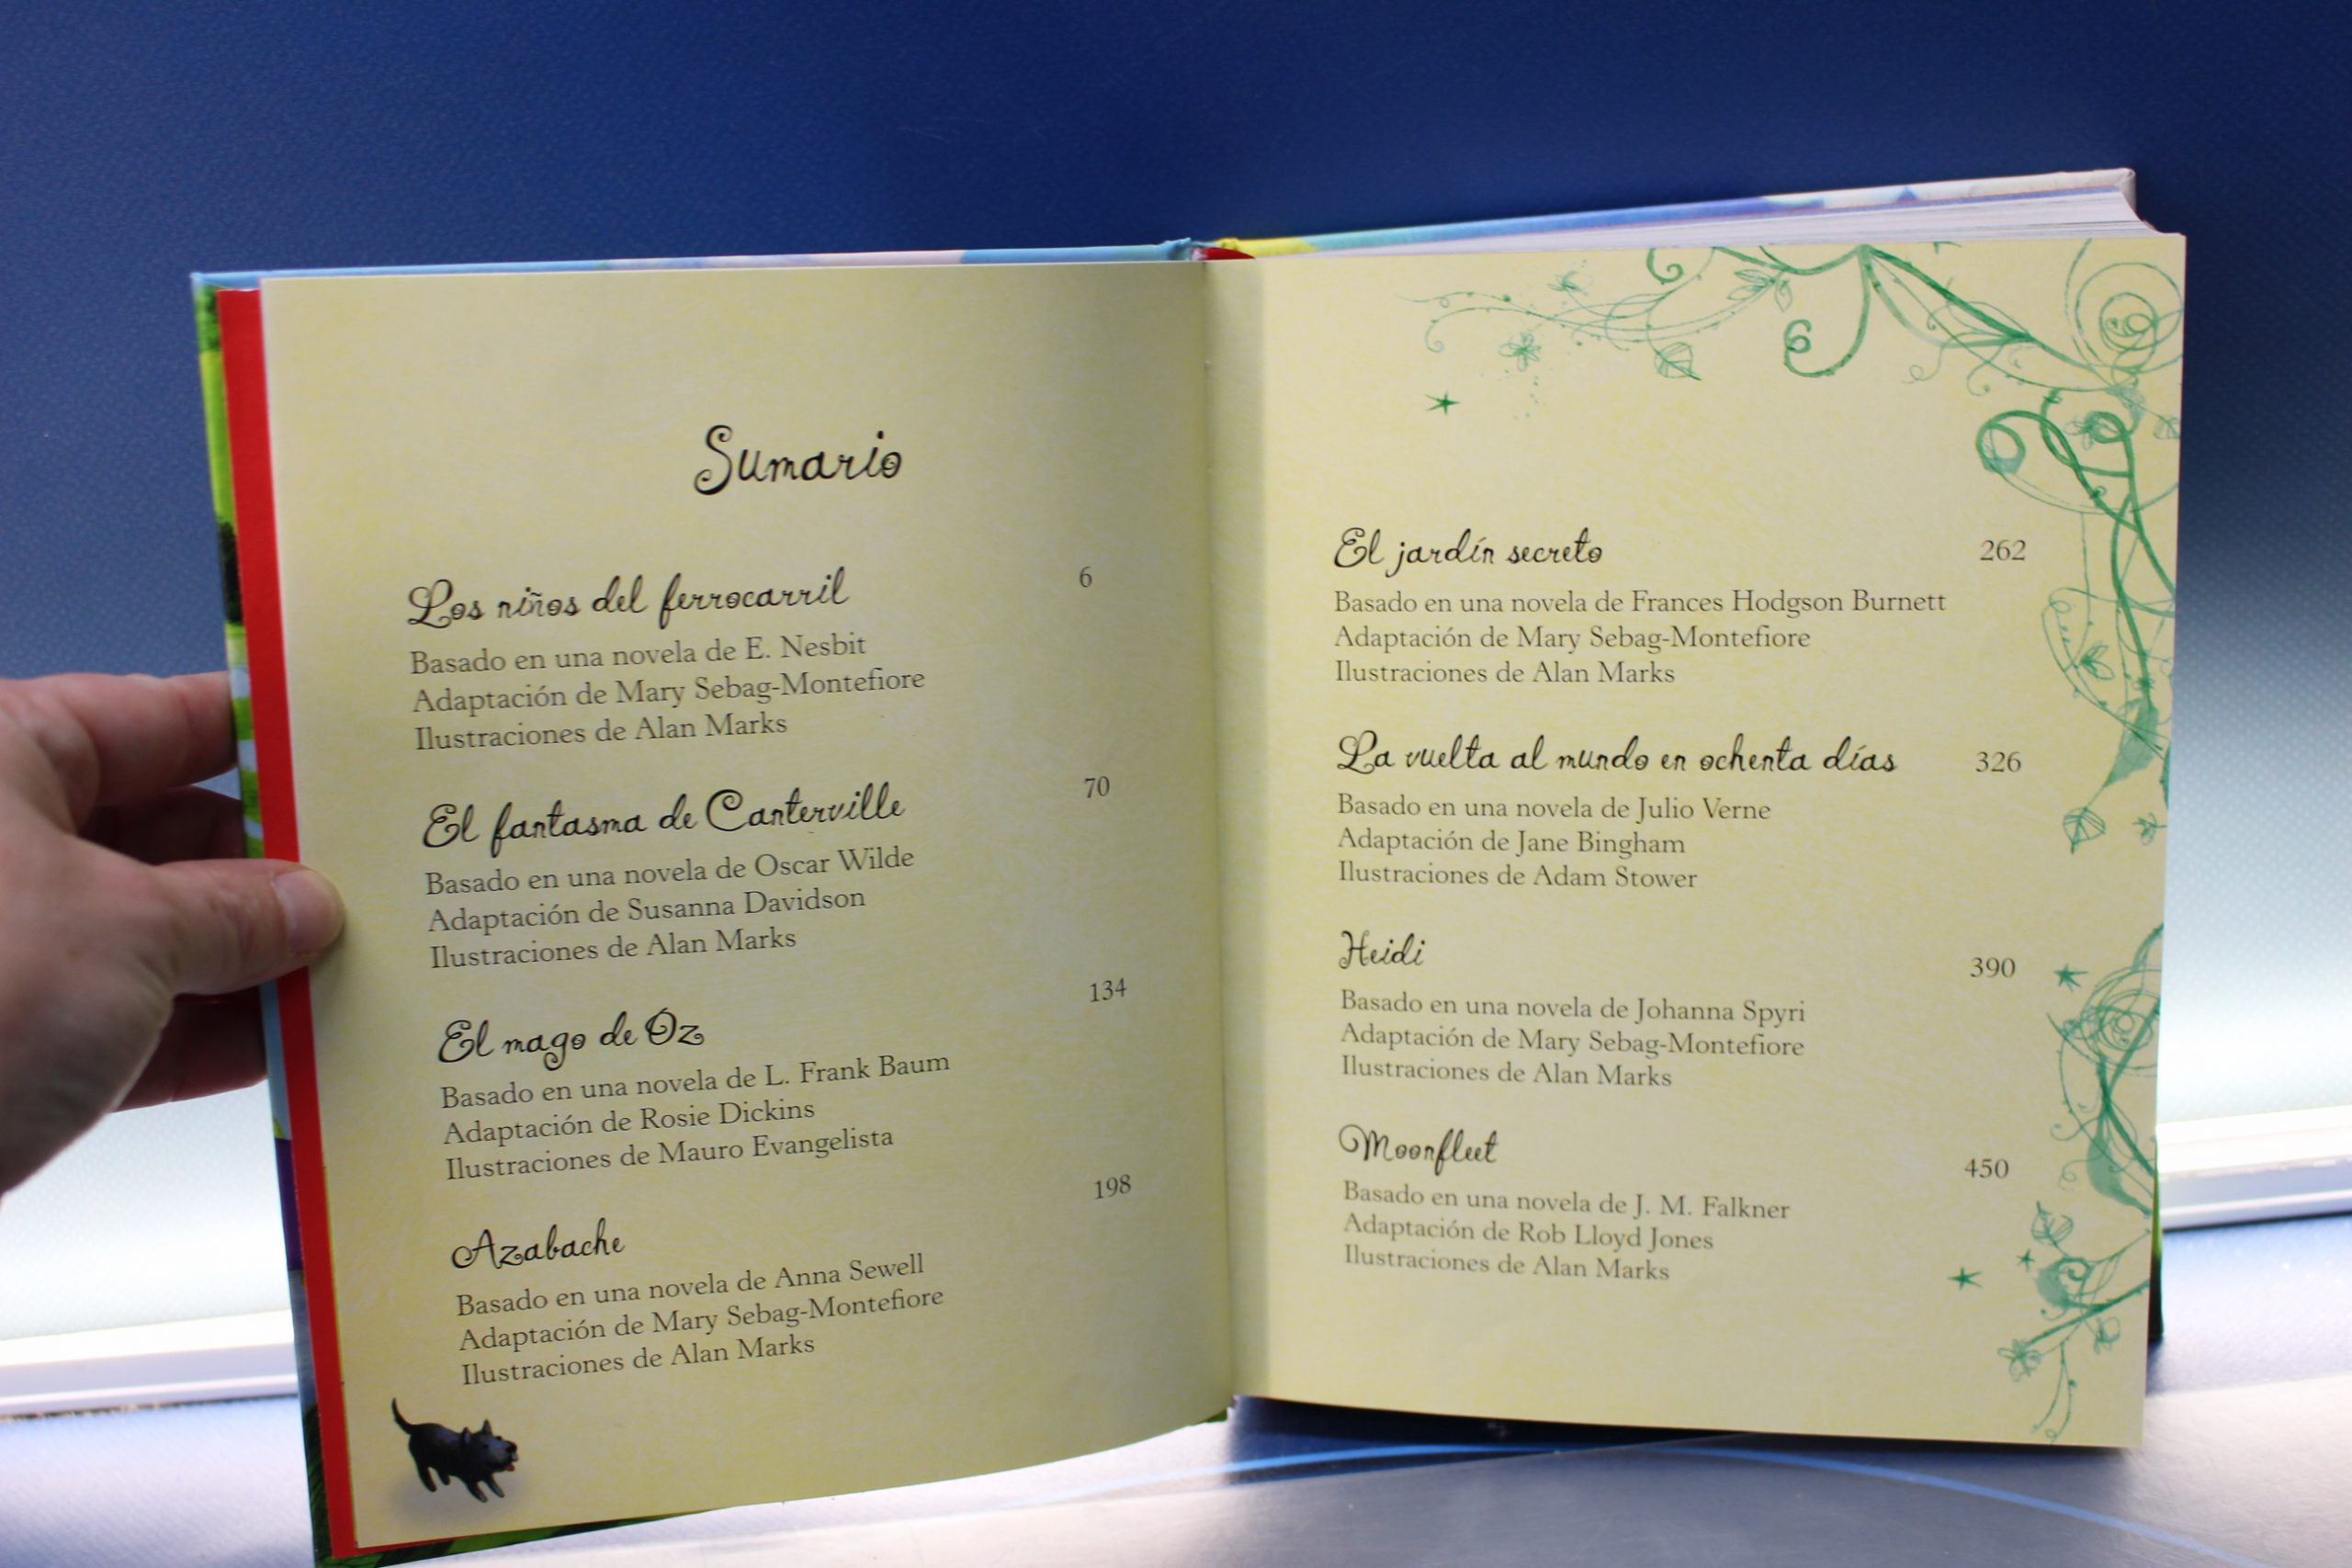 Sumario
Los niños del ferrocarril 6
Basado en una novela de E. Nesbit
Adaptación de Mary Sebag-Montefiore
Ilustraciones de Alan Marks
El fantasma de Canterville 70
Basado en una novela de Oscar Wilde
Adaptación de Susanna Davidson
Ilustraciones de Alan Marks
El mago de Oz 134
Basado en una novela de L. Frank Baum
Adaptación de Rosie Dickins
Ilustraciones de Mauro Evangelista
Azabache 198
Basado en una novela de Anna Sewell
Adaptación de Mary Sebag-Montefiore
Ilustraciones de Alan Marks
El jardín secreto 262
Basado en una novela de Frances Hodgson Burnett
Adaptación de Mary Sebag-Montefiore
Ilustraciones de Alan Marks
La vuelta al mundo en ochenta días 326
Basado en una novela de Julio Verne
Adaptación de Jane Bingham
Ilustraciones de Adam Stower
Heidi 390
Basado en una novela de Johanna Spyri
Adaptación de Mary Sebag-Montefiore
Ilustraciones de Alan Marks
Moonfleet 450
Basado en una novela de J. M. Falkner
Adaptación de Rob Lloyd Jones
Ilustraciones de Alan Marks